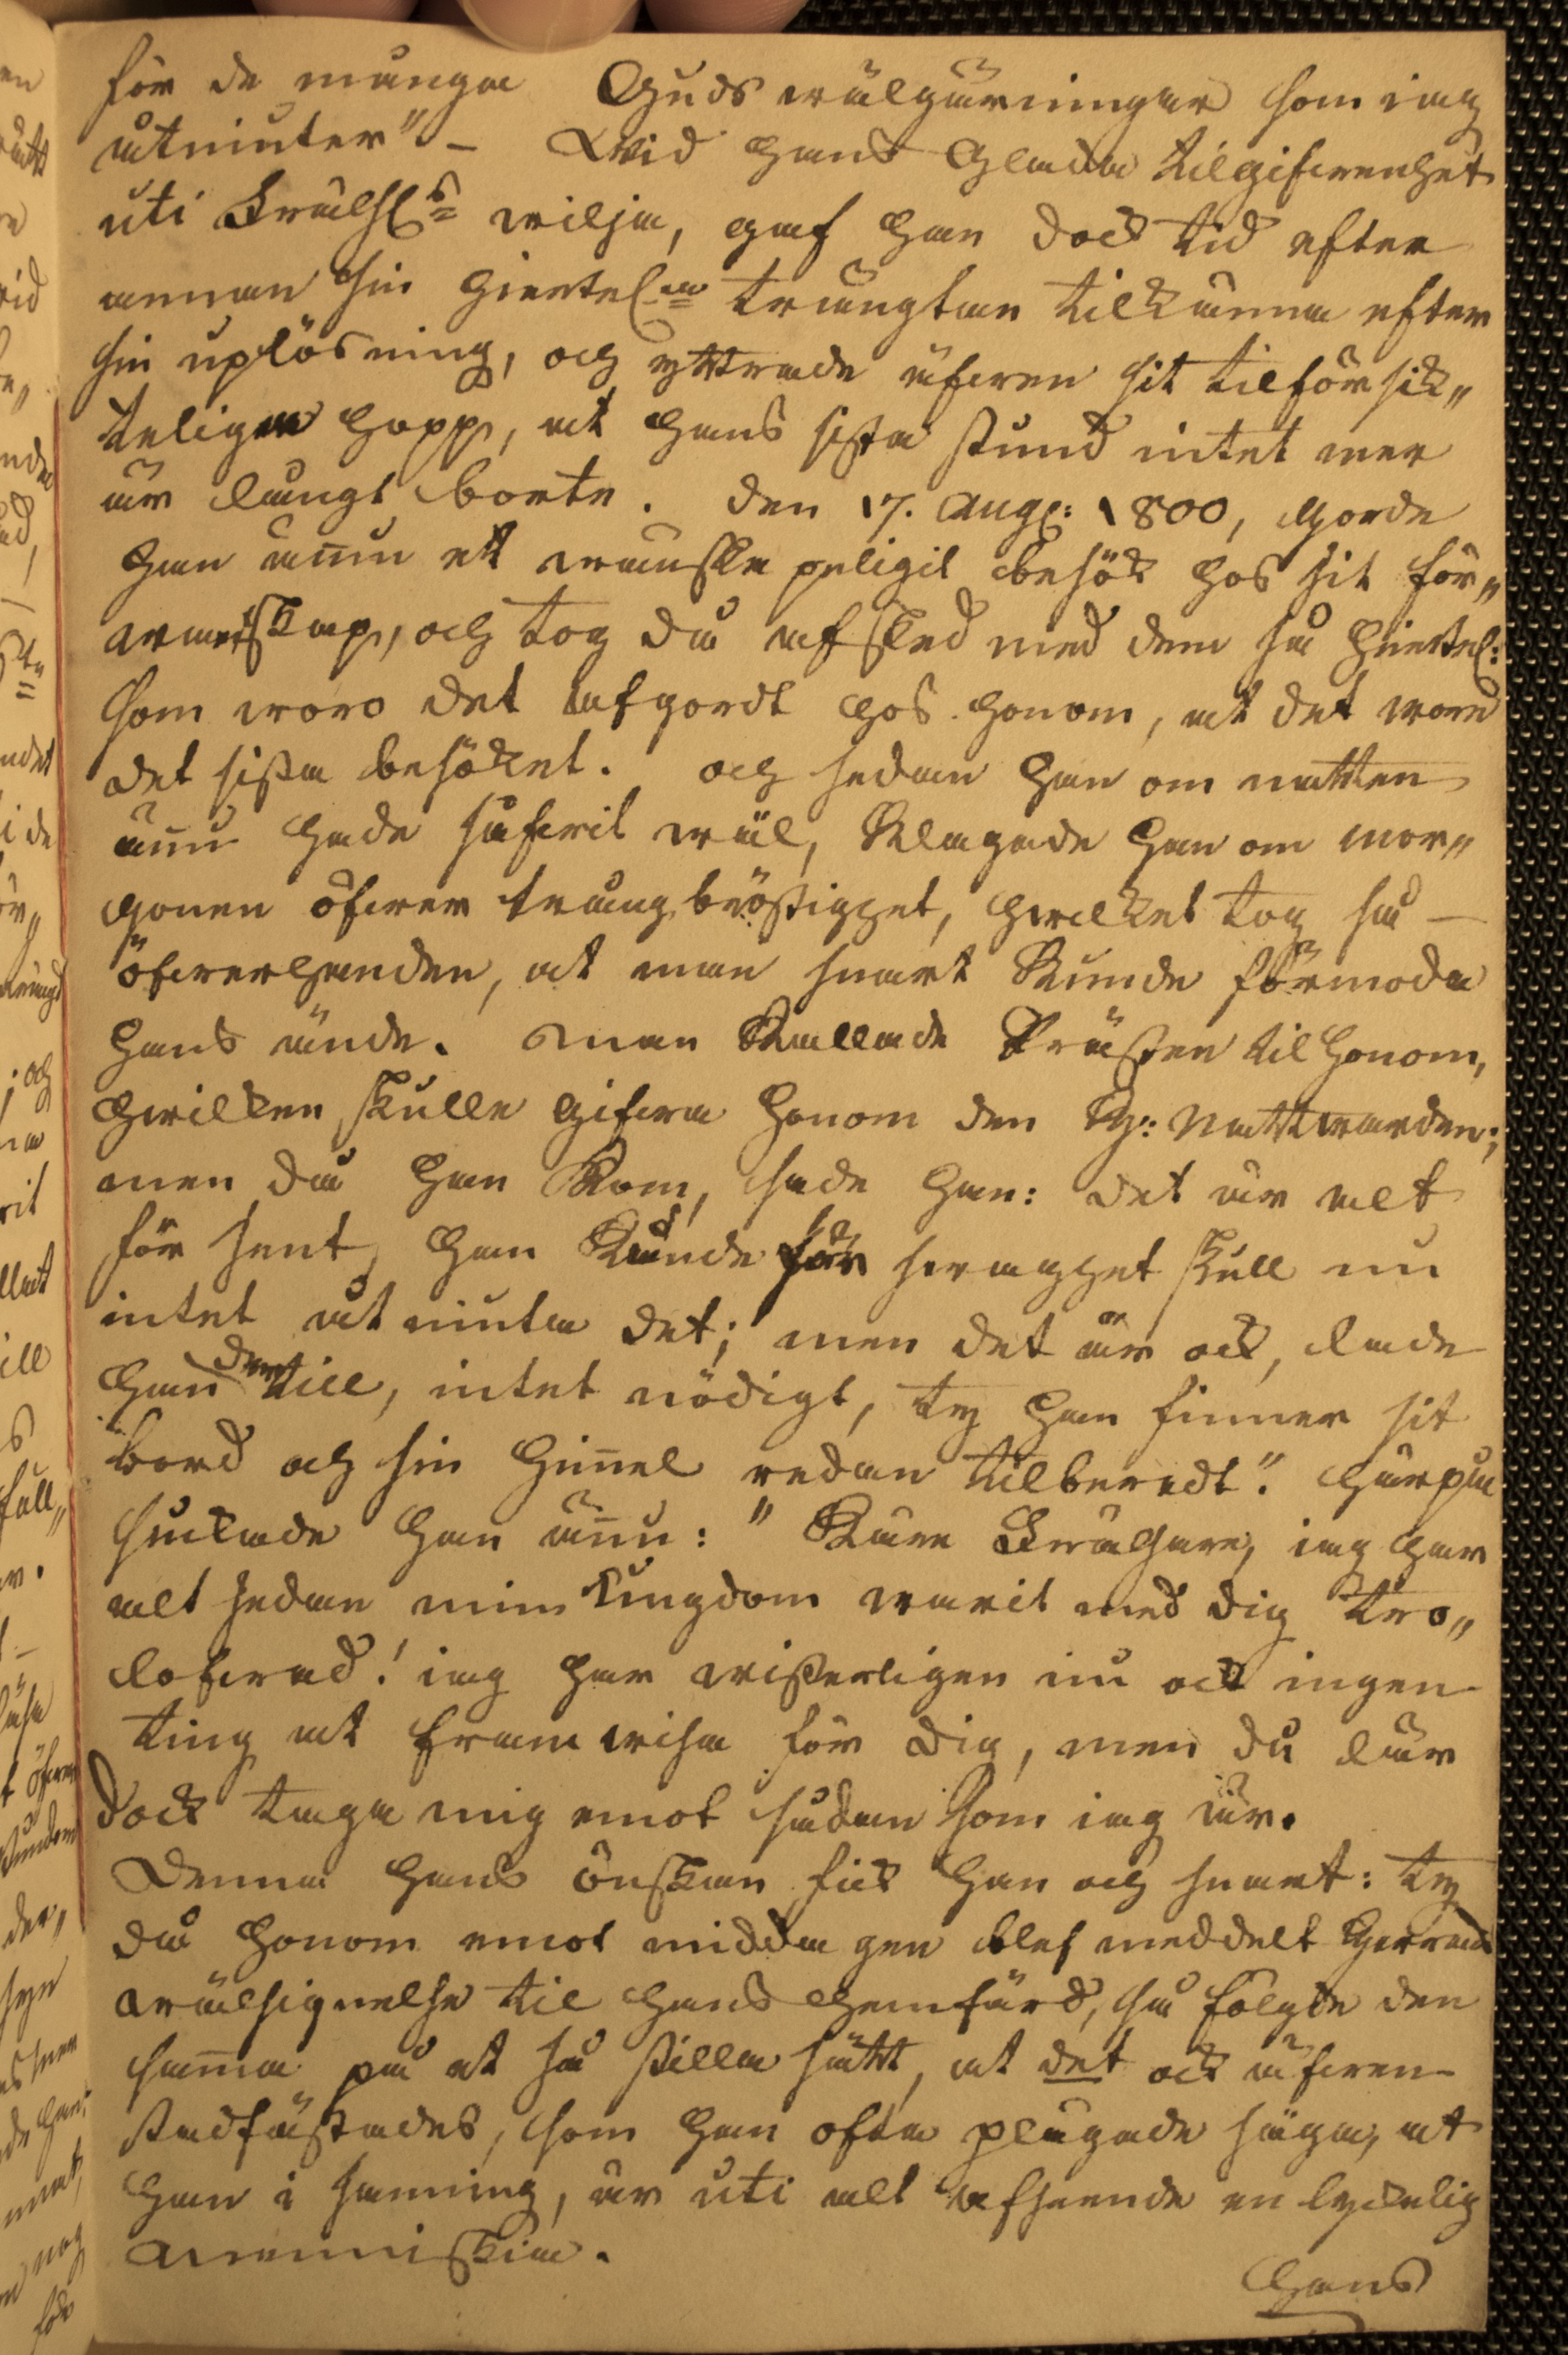 för de många Guds wälgärningar som iag
åtniuter" – Wid hans glada tilgifwenhet
uti Frälss wilja, gaf han dock tid efter
annan sin hiertel.a trängtan tilkänna efter
sin uplösning, och yttrade äfwen sit tilförsik„
teliga hopp, at hans sista stund intet mer
är långt borta. Den 17. Aug: 1800, giorde
han ännu et wanskeligit besök hos sit för„
wantskap, och tog då afsked med dem så hiertel:
som woro det afgordt hos honom, at det wore
det sista besöket. och sedan han om natten
ännu hade såfwit wäl, klagade han om mor„
gonen öfwer trångbröstighet, hwilket tog så –
öfwerhanden, at man snart kunde förmoda
hans ände. Man kallade Prästen til honom,
hwilken skulle gifwa honom den H: Nattwarden;
men då han kom, sade han: det är alt
för sent, han kunde för swaghet skull nu
intet åtniuta det; men det är ock, lade
han dertill, intet nödigt, ty han finner sit
bord och sin Himel redan tilberedt". Härpå
suckade han änu: " Käre Frälsare, iag har
alt sedan min Ungdom warit med dig tro„
lofwad! iag har wisserligen nu ock ingen
ting at framwisa för dig, men du lär
dock taga mig emot sådan som iag är.
Denna hans önskan fick han och snart: ty
då honom emot middagen blef meddelt Herrans
wälsignelse til hans hemfärd, så fölgde den
sama på et så stilla sätt, at det ock äfwen
stadfästades, som han ofta plägade säga, at
han i sanning, är uti alt afseende en lyckelig
Menniskia.
Hans